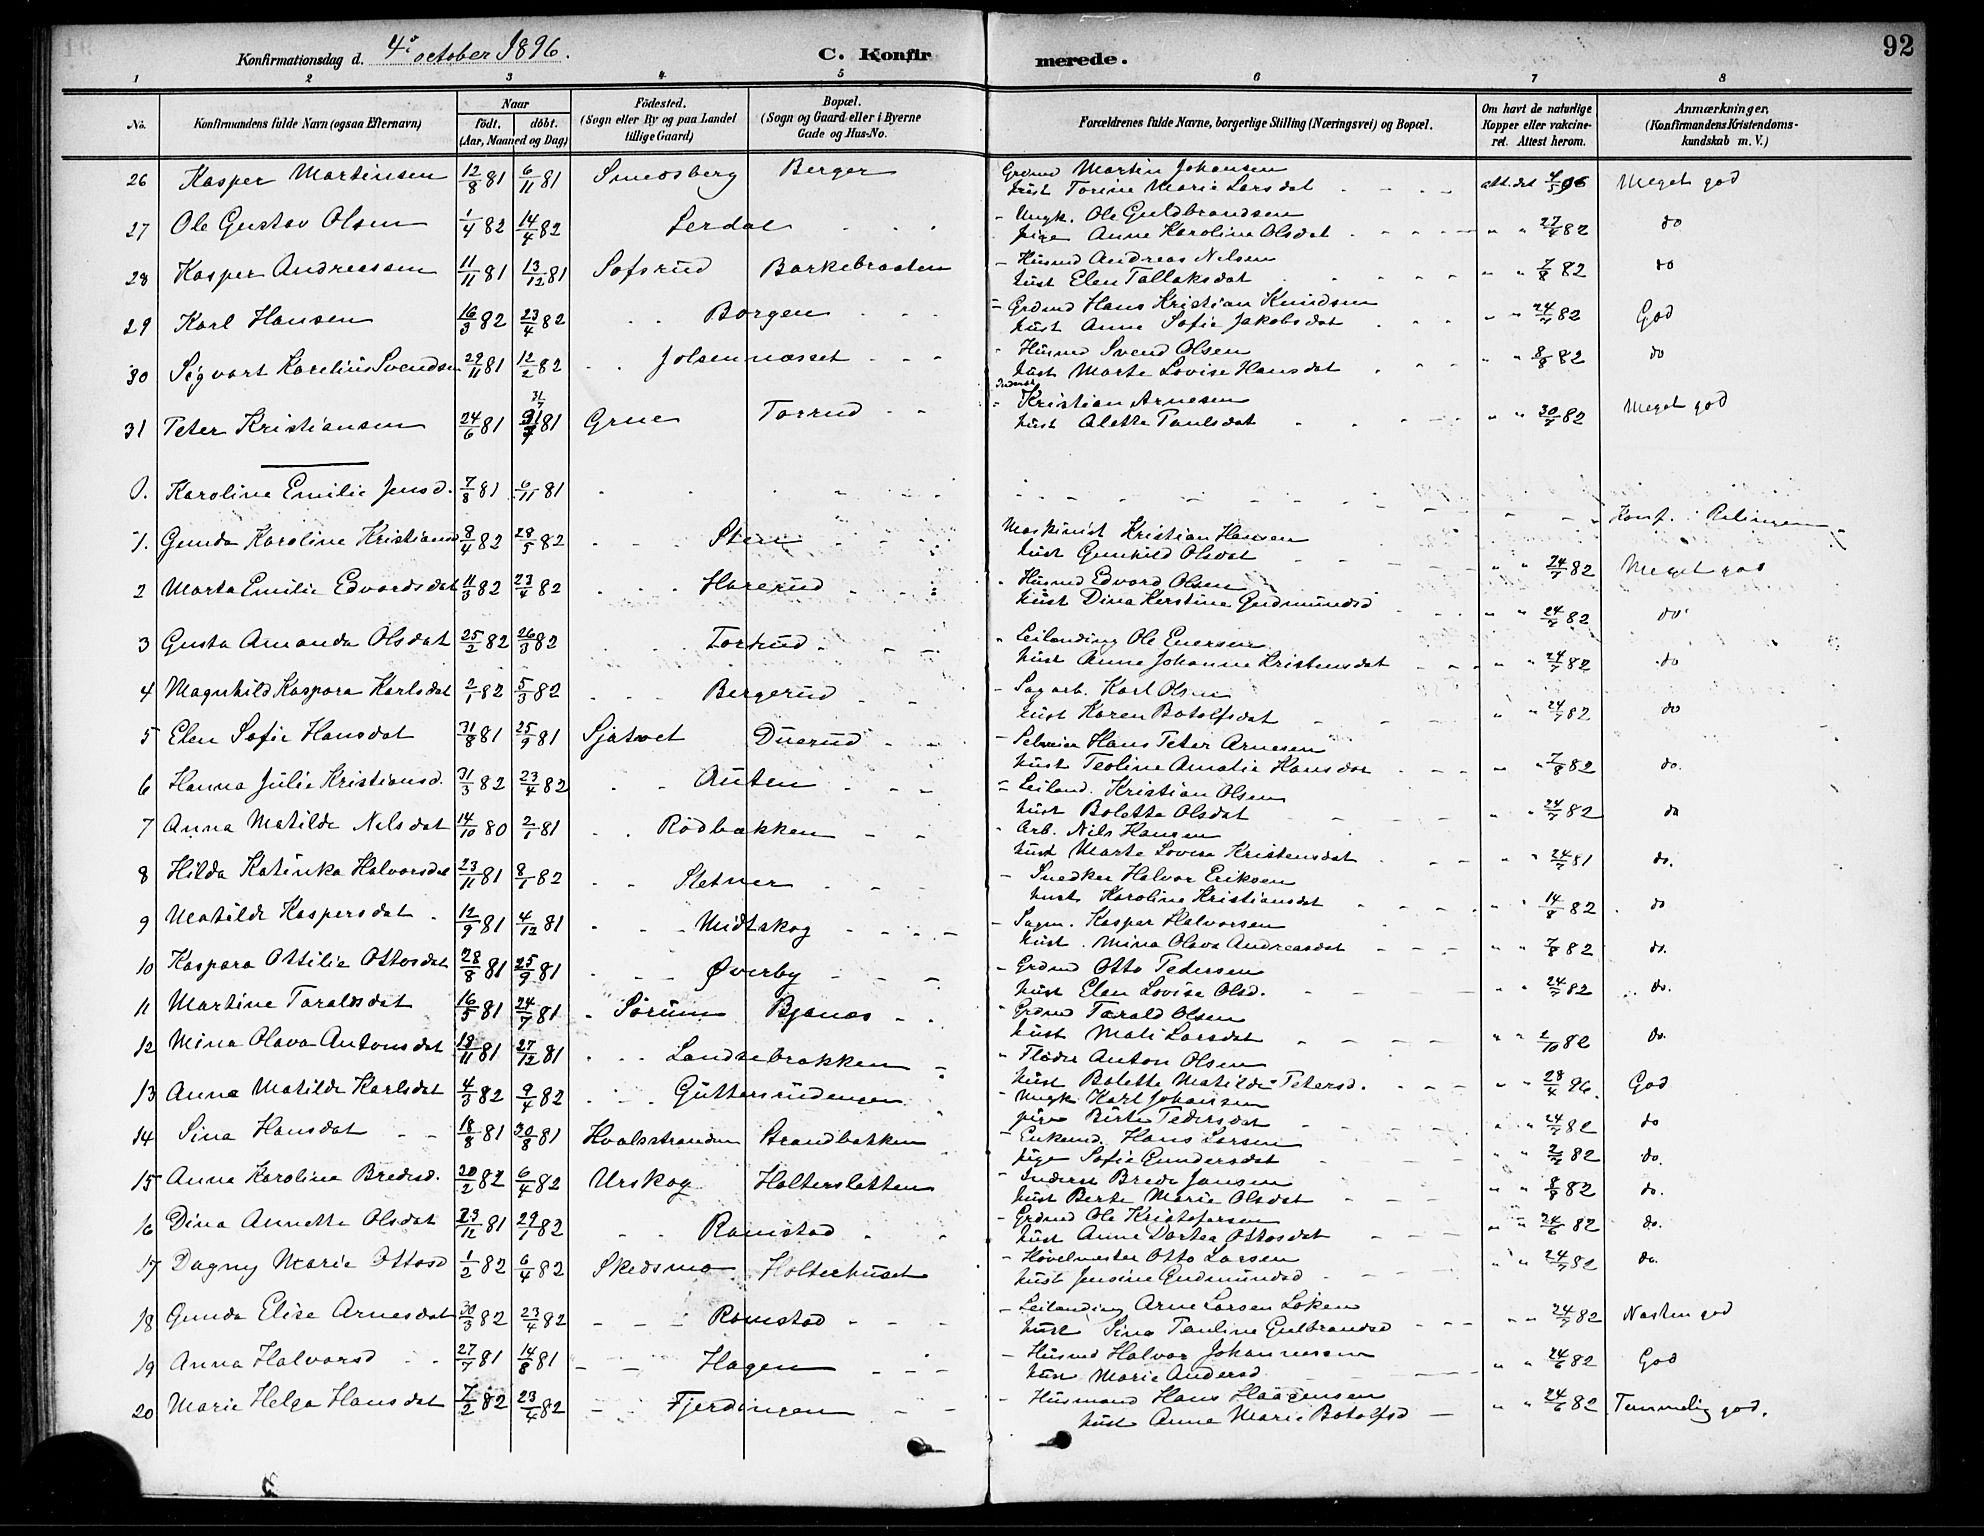 Konfirmationsdag d. 4de october 1896. C. Konfirmerede. 92
1 2 3 4 5 6 7 8
No. Konfirmandens fulde Navn (ogsaa Efternavn) Naar födt. döbt. (Aar, Maaned og Dag) Födested. (Sogn eller By og paa Landet tillige Gaard) Bopæl. (Sogn og Gaard eller i Byerne Gade og Hus-No. Forældrenes fulde Navne, borgerlige Stilling (Næringsvei) og Bopæl. Om havt de naturlige Kopper eller vakcineret. Attest herom. Anmærkninger. (Konfirmandens Kristendomskundskab m. V.)
26 Kasper Martinsen 12/8 81 6/11 81 Smedsberg Berger Grdmd Martin Johansen
hust Torine Marie Larsdat att. dat 4/5 96 Meget god
27 Ole Gustav Olsen 1/4 82 14/4 82 Lerdal Ungk. Ole Guldbrandsen
pige Anne Karoline Olsdat 27/4 82 do
28 Kasper Andreassen 11/11 81 13/12 81 Sofsrud Barkebraaten Husmd Andreas Nilsen
hust Elen Tollaksdat 7/8 82 do
29 Karl Hansen 16/3 82 23/4 82 Borgen Grdmd Hans Kristian Knudsen
hust Anne Sofie Jakobsdat 24/7 82 God
30 Sigvart Karelius Svendsen 29/11 81 12/2 82 Jolsennæsset Husmd Svend Olsen
hust Marte Lovise Hansdat 8/8 82 do
31 Peter Kristiansen 24/6 81 31/7 81 Grue Torrud Inderst Kristian Arnesen
hust Alette Paulsdat 30/7 82 Meget god
0. Karoline Emilie Jensd. 7/8 81 6/11 81 Konf. i Rælingen
1. Gunda Karoline Kristiansd 8/4 82 28/5 82 Sten Maskinist Kristian Hansen
hust Gunhild Olsdat 24/7 82 Meget god
2 Marta Emilie Edvardsdat 11/3 82 23/4 82 Harerud Husmd Edvard Olsen
hust Dina Kerstine Gudmundsd 24/7 82 do
3 Gusta Amanda Olsdat 25/2 82 26/3 82 Tordrud Leilænding Ole Enersen
hust Anne Johanne Kristensdat 24/7 82 do
4 Magnhild Kaspara Karlsdat 2/1 82 5/3 82 Bergerud Sagarb. Karl Olsen
hust Karen Botolfsdat 24/7 82 do
5 Elen Sofie Hansdat 31/8 81 25/9 81 Sjatvet Duerud Selveier Hans Peter Arnesen
hust Teoline Amalie Hansdat 7/8 82 do.
6 Hanna Julie Kristiansd. 31/3 82 23/4 82 Auten Leilænd. Kristian Olsen
hust Bolette Olsdat 24/7 82 do
7 Anna Matilde Nilsdat 14/10 80 2/1 81 Rödbakken Arb. Nils Hansen
hust Marte Lovise Kristensdat 24/7 81 do.
8 Hilda Katinka Halvorsdat 23/11 81 8/1 82 Sletner Snedker Halvor Eriksen
hust Karoline Kristiansdat 14/8 82 do
9 Matilde Kaspersdat 12/9 81 4/12 81 Midtskog Sagm. Kasper Halvorsen
hust Mina Olava Andreasdat 7/8 82 do.
10 Kaspara Ottilie Ottosdat 28/8 81 25/9 81 Øverby Grdmd Otto Pedersen
hust Elen Lovise Olsd. 24/7 82 do.
11 Martine Taraldsdat 16/5 81 24/7 81 Sörum Bjanes Grdmd Tarald Olsen
hust Mali Larsdat 2/10 82 do.
12 Mina Olava Antonsdat 18/11 81 27/12 81 Landsebrakken Fløder Anton Olsen
hust Bolette Matilde Petersd. 28/4 96. God
13 Anna Matilde Karlsdat 4/3 82 9/4 82 Guttersrudengen Ungk Karl Johansen
pige Birte Pedersdat 24/7 82 do
14 Sina Hansdat 18/8 81 30/8 81 Hvalsstranden Strandbakken Enkemd. Hans Larsen
pige Sofie Gundersdat 2/7 82 do.
15 Anna Karoline Bredesd. 20/2 82 6/4 82 Urskog Holterslatten Inderst Brede Jansen
hust Berte Marie Olsdat 8/8 82 do.
16 Dina Annette Olsdat 23/12 81 29/1 82 Ramstad Grdmd Ole Kristofersen
hust Anne Dortea Ottosdat 24/6 82 do.
17 Dagny Marie Ottosd 1/2 82 6/4 82 Skedsmo Holterhuset Høvelmester Otto Larsen
hust Jensine Gudmundsd 24/7 82 do.
18 Gunda Elise Arnesdat 30/3 82 23/4 82 Ramstad Leilænding Arne Larsen Löken
hust Sina Pauline Gulbrandsd 24/7 82 Næsten god
19 Anna Halvorsd 27/7 81 14/8 81 Hagen Husmd Halvor Johannessen
hust Marie Andersd 24/6 82 God
20 Marie Helga Hansdat 7/2 82 23/4 82 Fjerdingen Husmand Hans Haagensen
hust Anne Marie Botolfsd 24/6 82 Temmelig god.